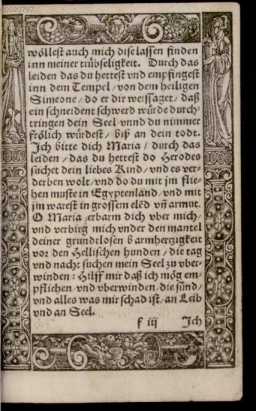 wöllest auch mich dise lassen finden
inn meiner trübseligkeit. Durch das
leiden das du hettest vnd empfingest
inn dem Tempel / von dem heiligen
Simeone / do er dir weissaget / daß
ein schneident schwerd würde durch⸗
tringen dein Seel vnnd du nimmer
frölich würdest / biß an dein todt.
Ich bitte dich Maria / durch das
leiden / das du hettest do Herodes
suchet dein liebes Kind / vnd es ver⸗
derben wolt / vnd do du mit jm flie⸗
hen mustest in Egyptenland / vnd mit
jm warest in grossem elẽd vñ armut.
O Maria erbarm dich vber mich /
vnd verbirg mich vnder den mantel
deiner grundlosen barmhertzigkeit
vor den Hellischen hunden / die tag
vnd nacht suchen mein Seel zu vber⸗
winden : Hilff mir daß ich mög em⸗
pfliehen vnd vberwinden die sünd /
vnd alles was mir schad ist / an Leib
vnd an Seel.
f iij Ich